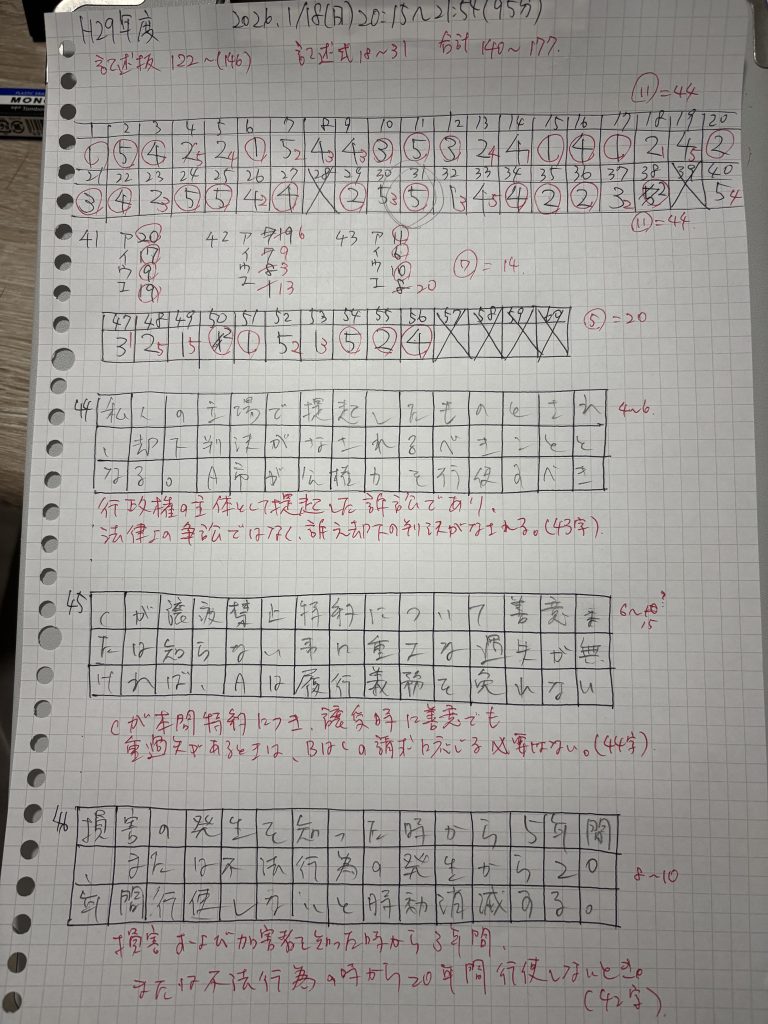 H29年度 2026.1/18(日)20:15〜21:54(95分)
記述抜 122〜(146) 記述式18〜31 合計 140〜177.
MONO
⑪=44
1 2 3 4 5 6 7 8 9 10 11 12 13 14 15 16 17 18 19 20
① ⑤ ④ 2 5 2 4 ① 5 2 4 3 4 3 ③ ⑤ ③ 2 4 4 1 ① ④ ① 2 1 4 5 ②
21 22 23 24 25 26 27 28 29 30 31 32 33 34 35 36 37 38 39 40
③ ④ 2 3 ⑤ ⑤ 4 2 ④ ② 5 3 ⑤ 1 3 4 5 ④ ② ② 3 2 5 4
⑪=44
41 ア 20 42 ア 19 6 43 ア 11
イ 17 イ 7 9 イ 6
ウ 9 ウ 8 3 ウ 10
エ 19 エ 1 13 エ 8 20
⑦=14
47 48 49 50 51 52 53 54 55 56 57 58 59 60
3 1 2 5 1 5 ① 5 2 1 3 ⑤ ② ④
⑤=20
44 私人の立場で提起したものとされ
、却下判決がなされるべきことと
なる。A市が公権力を行使すべき
4〜6
行政権の主体として提起した訴訟であり、
法律上の争訟ではなく、訴え却下の判決がなされる。(43字)
45 Cが譲渡禁止特約について善意ま
たは知らない事に重大な過失が無
ければ、Aは履行義務を免れない
6〜10? 15
Cが本問特約につき、譲受時に善意でも
重過失があるときは、BはCの請求に応じる必要はない。(44字)
46 損害の発生を知った時から5年間
、または不法行為の発生から20
年間行使しないと時効消滅する。
8〜10
損害および加害者を知った時から3年間、
または不法行為の時から20年間行使しないとき。
(42字)